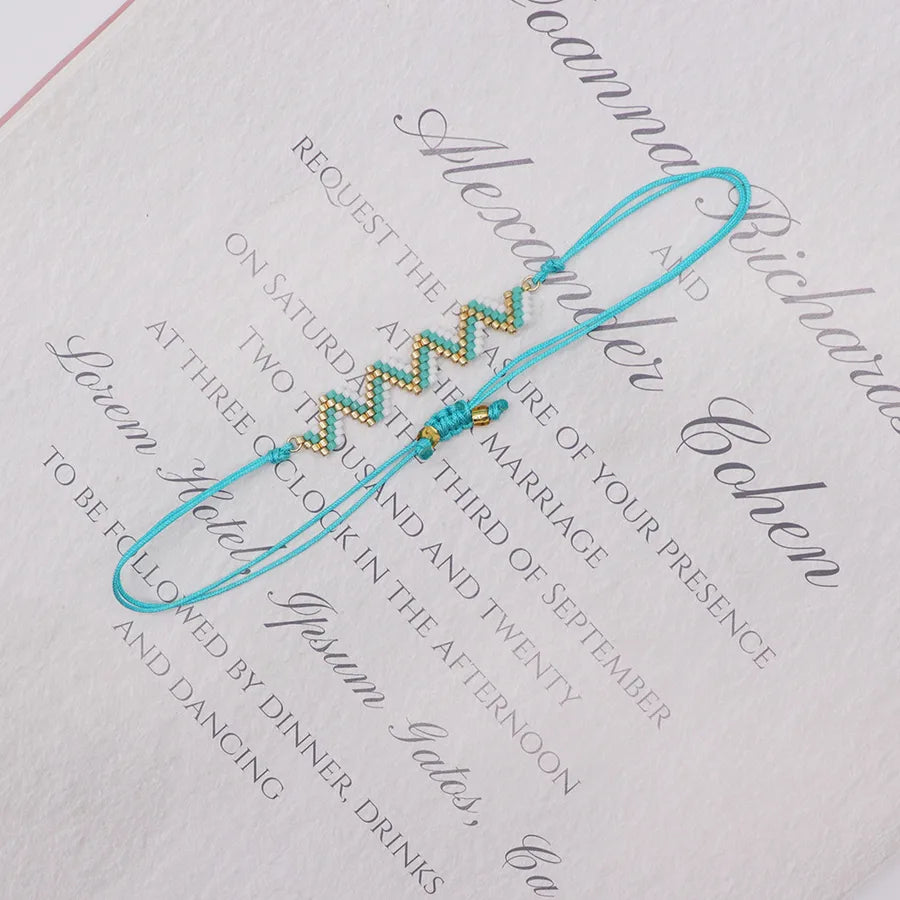 Joanna Richards
AND
Alexander Cohen
REQUEST THE PLEASURE OF YOUR PRESENCE
AT THE MARRIAGE
ON SATURDAY THE THIRD OF SEPTEMBER
TWO THOUSAND AND TWENTY
AT THREE O'CLOCK IN THE AFTERNOON
Lorem Hotel, Ipsum Gatos, Ca
TO BE FOLLOWED BY DINNER, DRINKS
AND DANCING